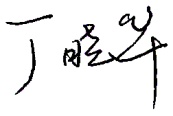 丁晓华